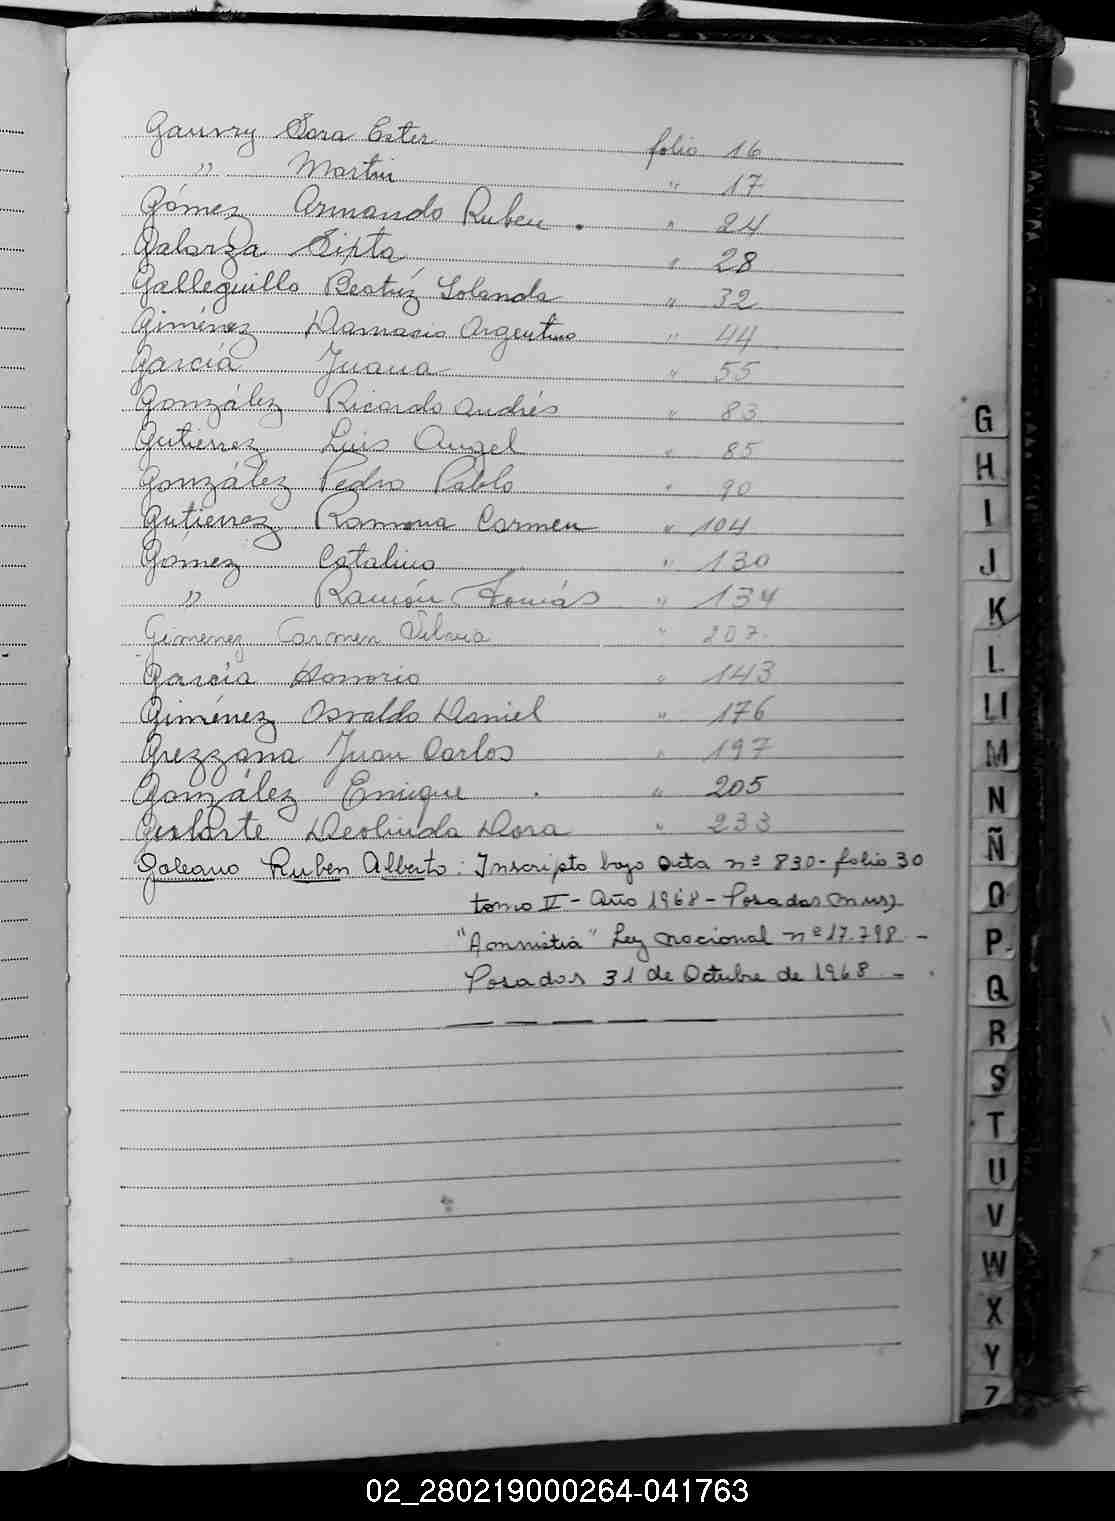 Gauvry Sara Ester folio 16
" Martin " 17
Gómez Armando Ruben . " 24
Galarza Sixta " 28
Galleguillo Beatríz Yolanda " 32
Giménez Damacio Argentino " 44
García Juana " 55
González Ricardo Andrés " 83
Gutierrez Luis Angel " 85
González Pedro Pablo " 90
Gutierrez Ramona Carmen " 104
Gómez Catalina " 130
" Ramón Tomás " 134
Gimenez Carmen Silvia " 207
García Honorio " 143
Giménez Osvaldo Daniel " 176
Grezzana Juan Carlos " 197
González Enrique " 205
Deolinda Dora " 233
Galeano Ruben Alberto: Inscripto bajo acta nº 830 - folio 30
tomo II - Año 1968 - Posadas (Mnes)
"Amnistia" Ley nacional nº 17.798 -
Posadas 31 de Octubre de 1968 -
G
H
I
J
K
L
Ll
M
N
Ñ
O
P
Q
R
S
T
U
V
W
X
Y
Z
02_280219000264-041763